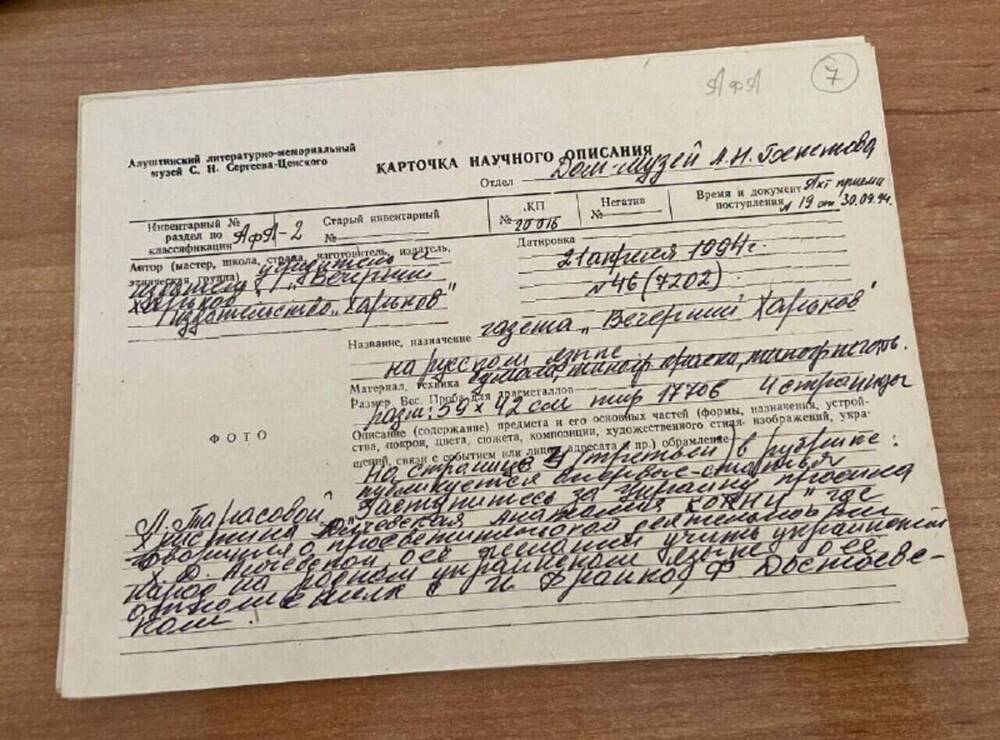 АфА 7
Алуштинский литературно-мемориальный
музей С. Н. Сергеева-Ценского
КАРТОЧКА НАУЧНОГО ОПИСАНИЯ
Отдел Дом-музей А.Н. Бекетова
Инвентарный №
раздел по
классификации АфА-2
Старый инвентарный
№
КП
№ 20016
Негатив
№
Время и документ Акт приема
поступления № 19 от 30.09.94.
Автор (мастер, школа, страна, изготовитель, издатель,
этническая группа) учредитель и
издатель "Вечерний
Харьков",
издательство "Харьков"
Датировка
21 апреля 1994 г.
№ 46 (7202)
Название, назначение газета "Вечерний Харьков"
на русском языке
Материал, техника бумага, типогр. краска, типогр. печать.
Размер. Вес. Проба для драгметаллов
разм: 59 х 42 см тир 17706 4 страницы
ФОТО
Описание (содержание) предмета и его основных частей (формы, назначения, устрой-
ства, покрой, цвета, сюжета, композиции, художественного стиля, изображений, укра-
шений, связи с событием или лицом, адресата и пр.) обрамление
На странице 3 (третьей) в рубрике:
публикуется впервые - статья
Л. Тарасовой "Заступитесь за Украину просила
Христина Алчевская Анатолия Кони" где
о просветительской деятельности
Х. Д. Алчевской, о её желании учить украинский
народ на родном украинском языке, о её
отношениях с И. Франко, Ф. Достоевс-
ким.